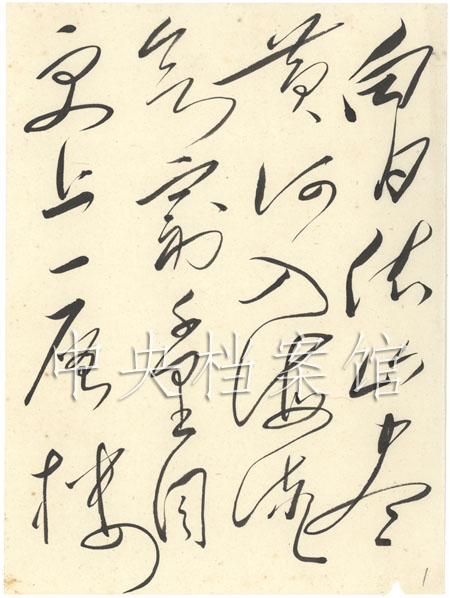 白日依山尽
黄河入海流
欲穷千里目
更上一层楼
中央档案馆
1